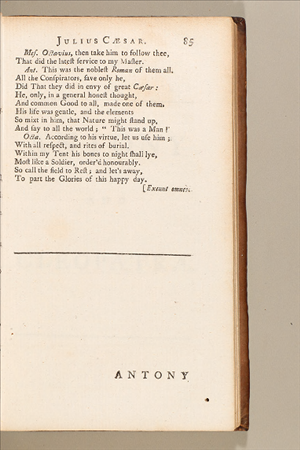 JULIUS CÆSAR. 85
Meſ. Octavius, then take him to follow thee,
That did the lateſt ſervice to my Maſter.
Ant. This was the nobleſt Roman of them all.
All the Conſpirators, ſave only he,
Did That they did in envy of great Cæſar:
He, only, in a general honeſt thought,
And common Good to all, made one of them.
His life was gentle, and the elements
So mixt in him, that Nature might ſtand up,
And ſay to all the world; “ This was a Man!
Octa. According to his virtue, let us uſe him;
With all reſpect, and rites of burial.
Within my Tent his bones to night ſhall lye,
Moſt like a Soldier, order'd honourably.
So call the field to Reſt; and let's away,
To part the Glories of this happy day.
[Exeunt omnes.
ANTONY